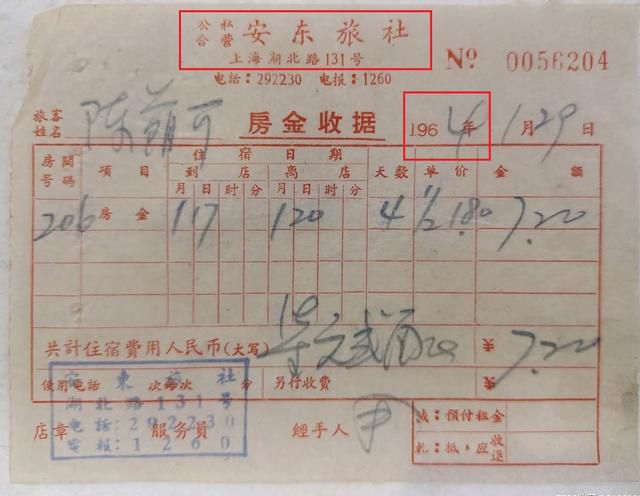 公私合营 安东旅社
上海湖北路131号
No 0056204
电話：292230 电报：1260
旅客姓名 陈 可
房金收据
1964年1月29日
房間号碼 項目 住宿日期 天数 单价 金額
到店 离店
月日时分 月日时分
206 房金 1 17 1 20 4 1/2 1.80 7.20
共計住宿費用人民币(大写) 柒元贰角 7.20
使用电話 次每次 分 另行收費
安东旅社
湖北路131号
电話:292230
電報:1260
店章 服务員 經手人 尹
减：预付租金
轧：抵，应收退